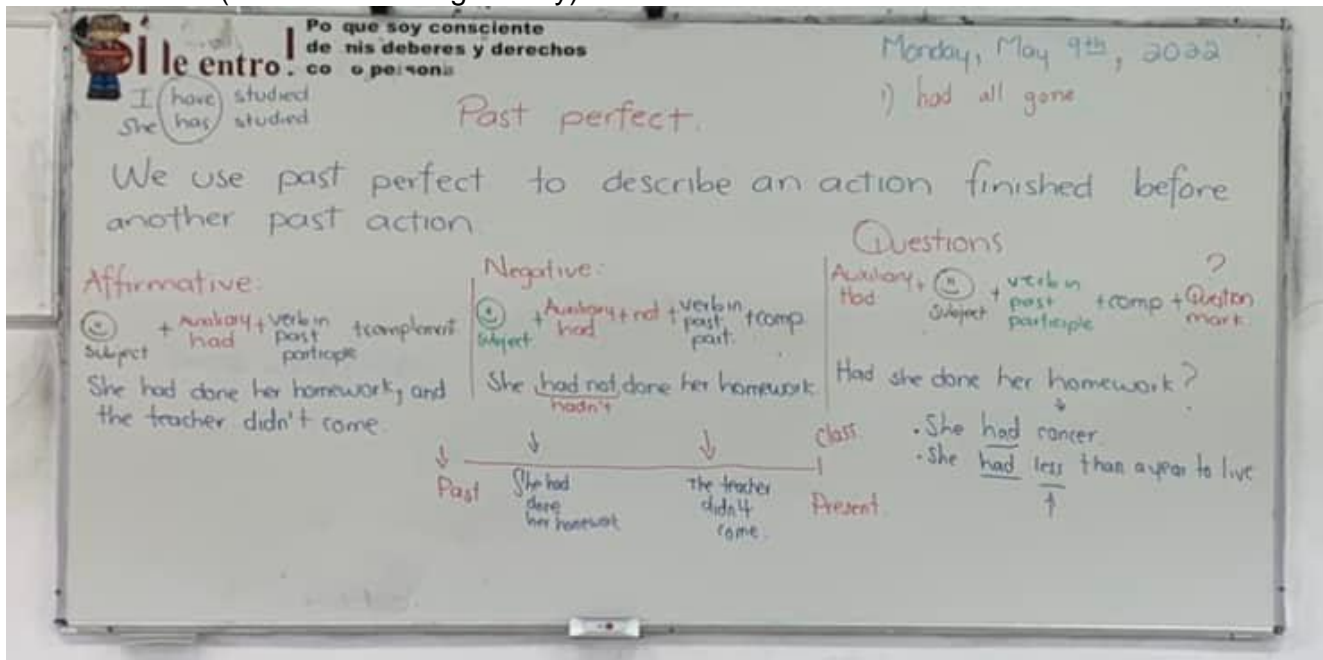 Si le entro!
Po que soy consciente
de mis deberes y derechos
co o persona
Monday, May 9th, 2022
1) had all gone
I have studied
She has studied
Past perfect.
We use past perfect to describe an action finished before
another past action
Affirmative:
subject + Auxiliary had + verb in past participle + complement
She had done her homework, and
the teacher didn't come.
Negative:
subject + Auxiliary had + not + verb in past part. + comp
She had not done her homework
hadn't
Questions
Auxiliary Had + subject + verb in past participle + comp + ? Question mark
Had she done her homework?
• She had cancer
• She had less than a year to live
Class
Past
She had done her homework
The teacher didn't come.
Present